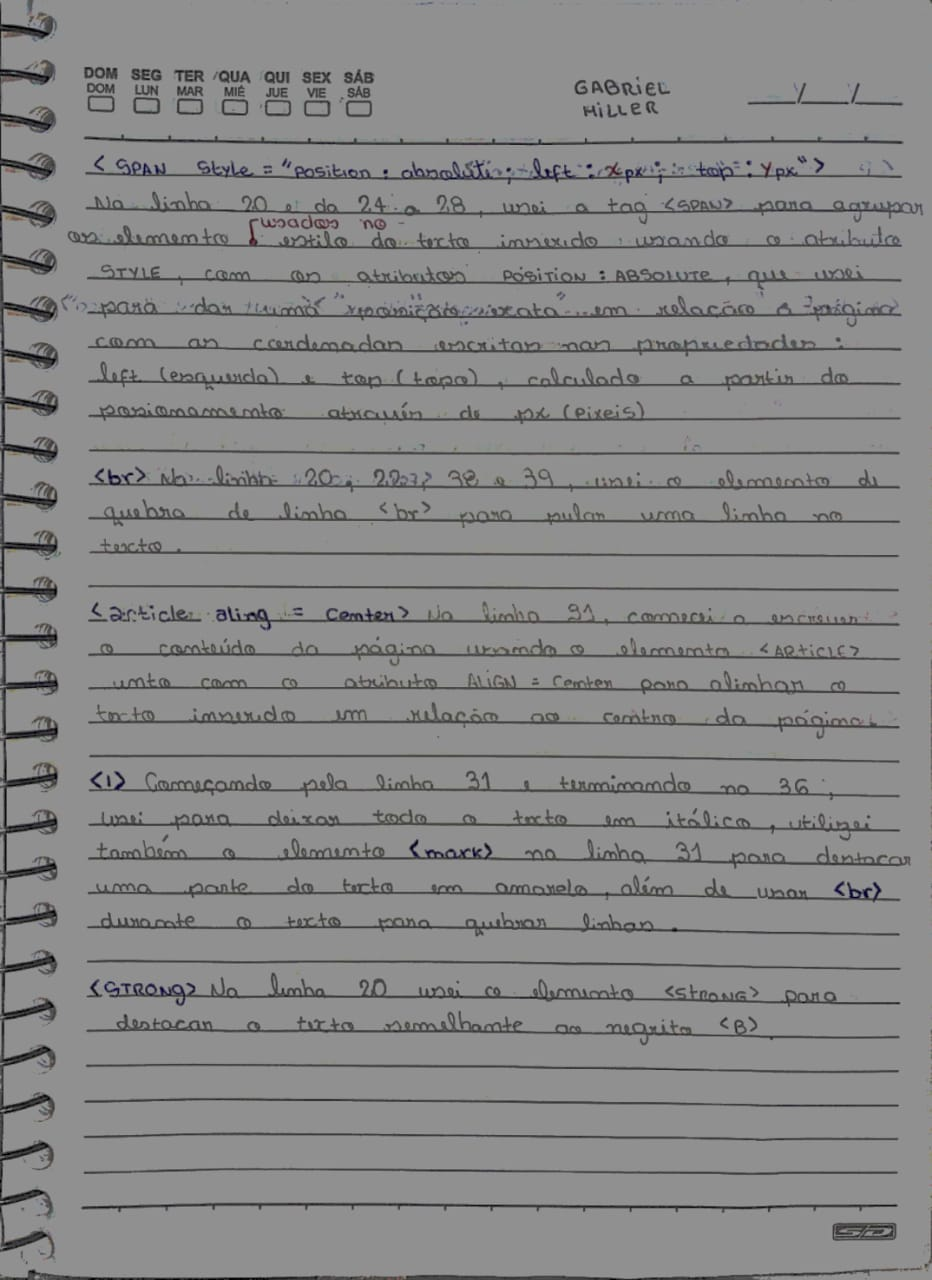 DOM SEG TER QUA QUI SEX SÁB
DOM LUN MAR MIÉ JUE VIE SÁB
GABRIEL
MILLER
<SPAN style="position: absoluti; left: xpx; top: ypx">
Na linha 20 e da 24 a 28, usei a tag <SPAN> para agrupar
usados no
os elemento estilo do texto inserido usando o atributo
STYLE, com os atributos POSITION: ABSOLUTE, que usei
para dar uma exata em relação a página
com as coordenadas escritas nas propriedades:
left (esquerda) e top (topo), calculado a partir do
posionamento através de px (Pixeis)
<br> Na linha 20, 38 e 39, usei o elemento de
quebra de linha <br> para pular uma linha no
texto.
<article aling = center> Na linha 31, comecei a escrever
o conteúdo da página usando o elemento <ARTICLE>
unto com o atributo ALIGN = center para alinhar o
texto inserido em relação ao centro da página.
<i> Começando pela linha 31 e terminando na 36,
usei para deixar todo o texto em itálico, utilizei
também o elemento <mark> na linha 31 para destacar
uma parte do texto em amarelo, além de usar <br>
durante o texto para quebrar linhas.
<STRONG> Na linha 20 usei o elemento <STRONG> para
destacar o texto semelhante ao negrito <B>
SD